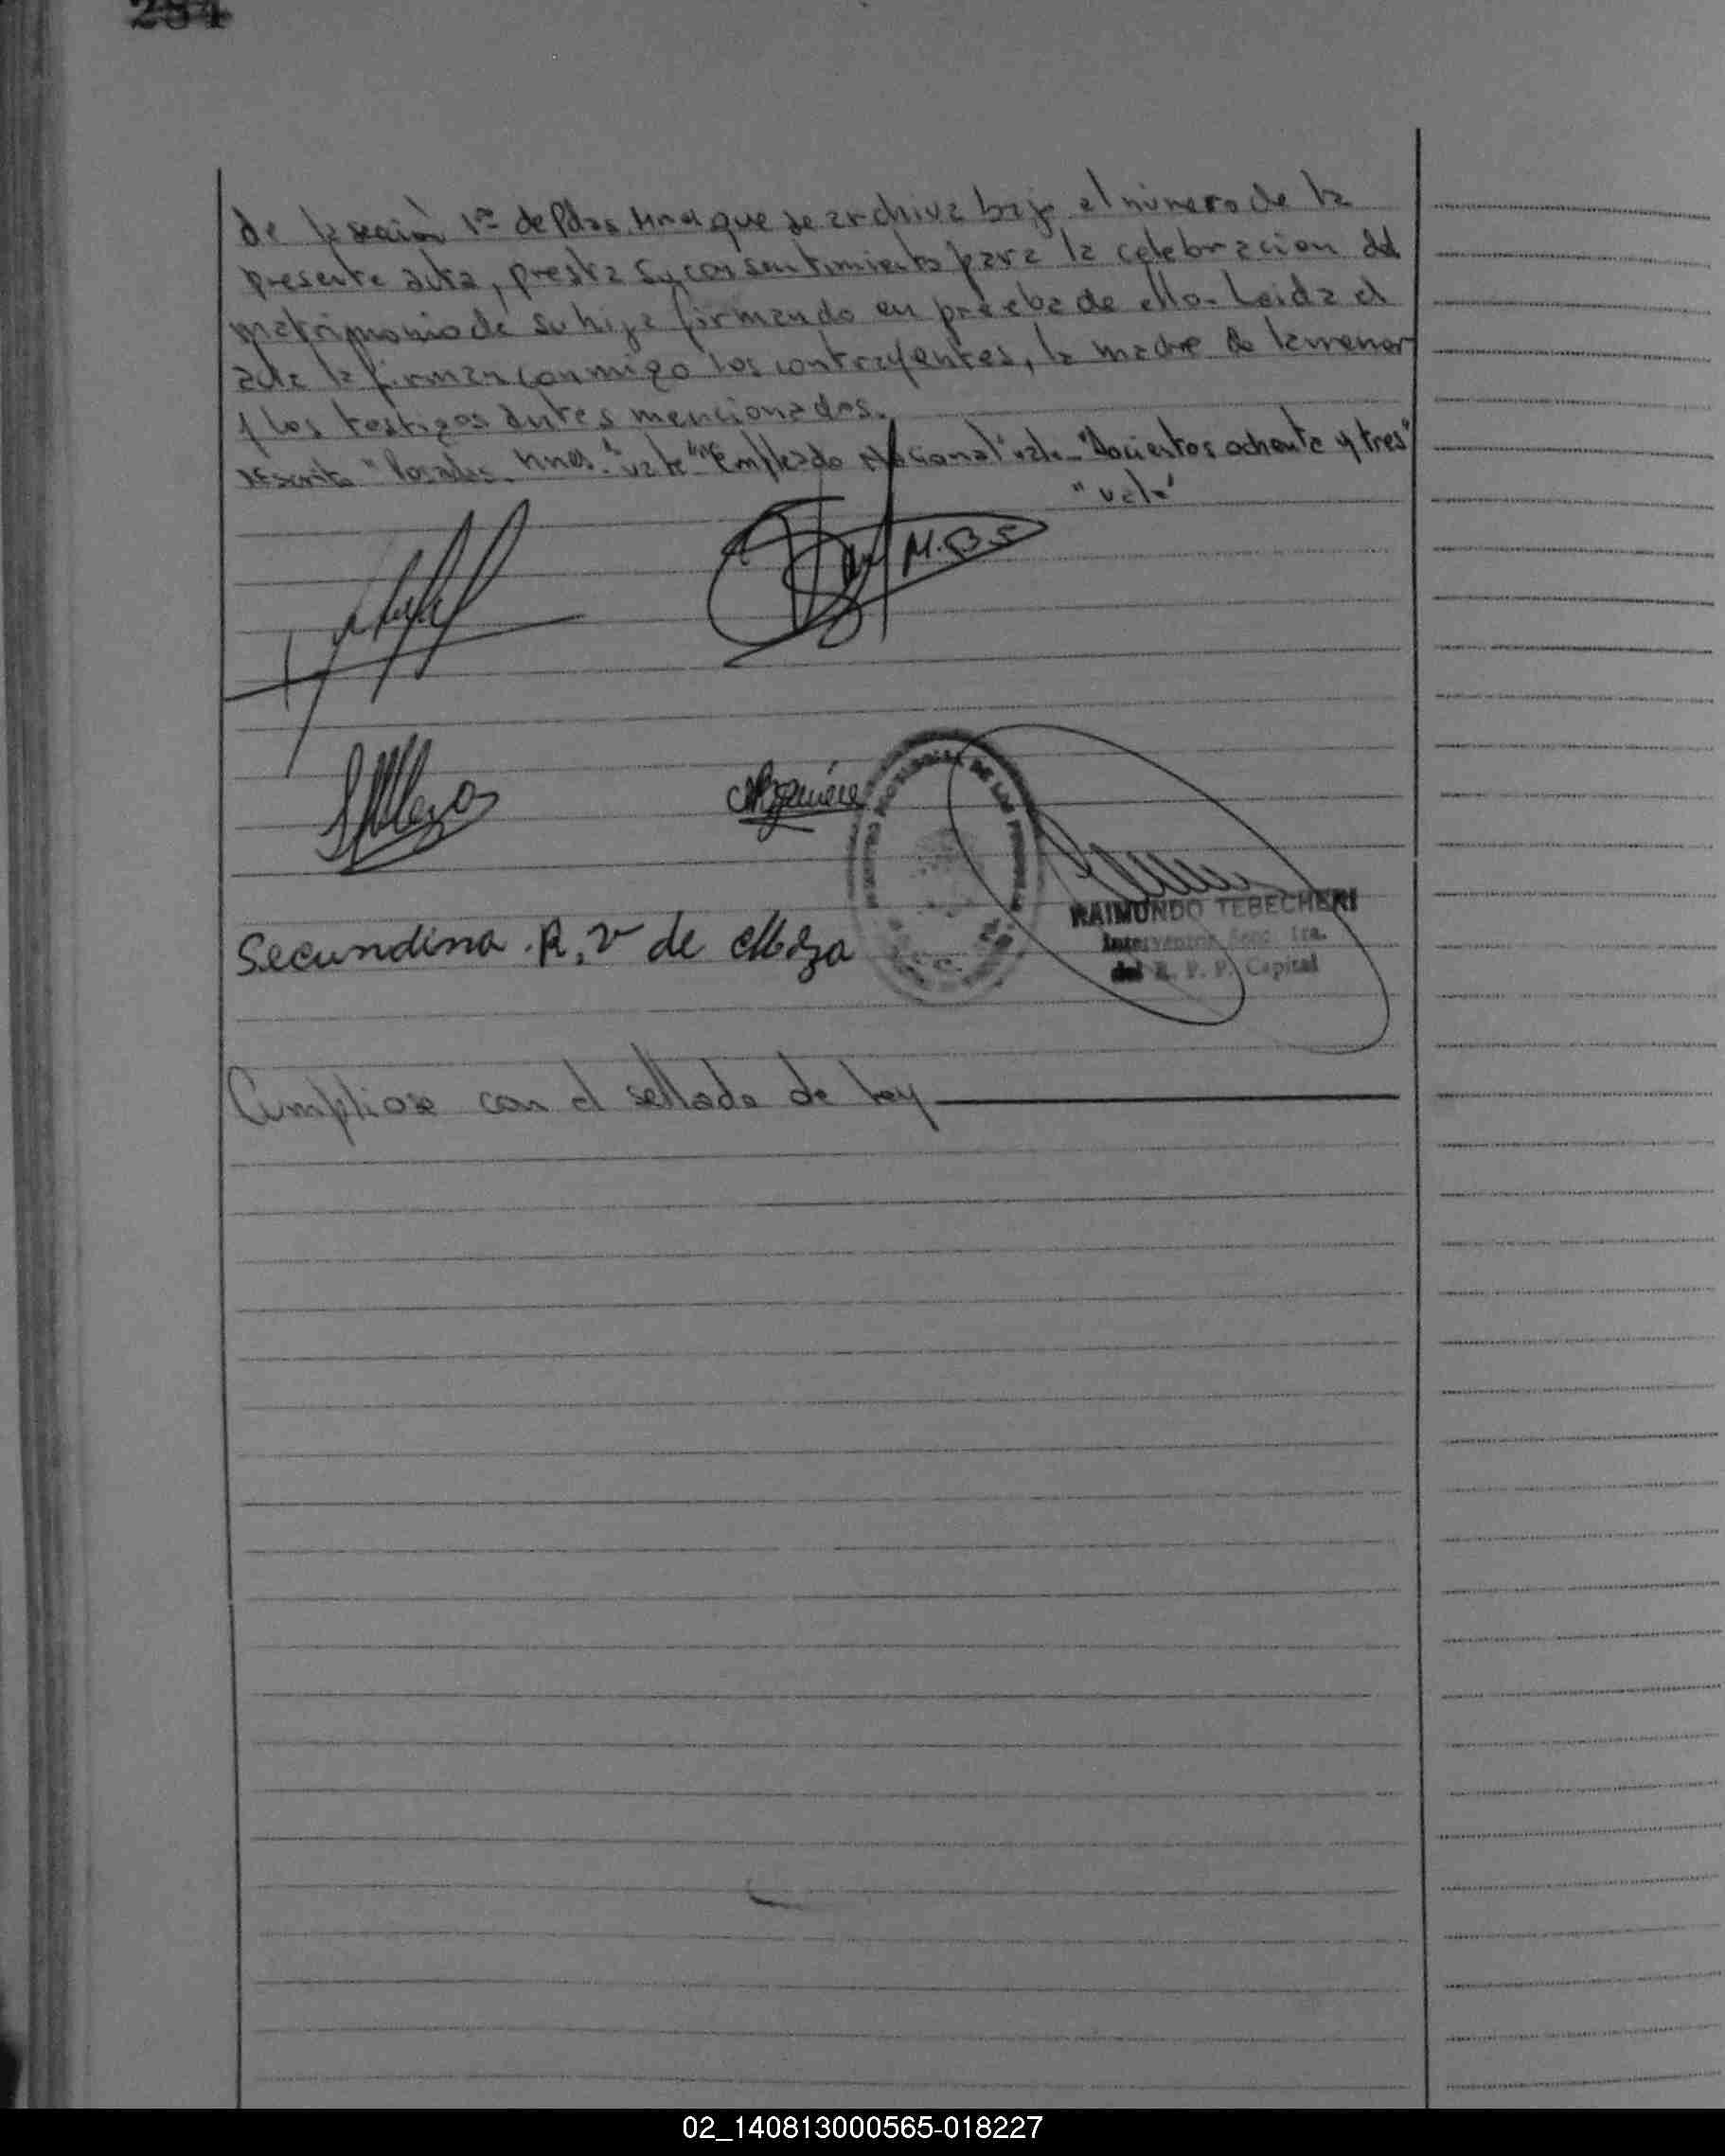 284
de la sección 1ra de Pdas. Mnes que se archiva bajo el número de la
presente acta, presta su consentimiento para la celebracion del
matrimonio de su hija firmando en prueba de ello. Leida el
acta la firman conmigo los contrayentes, la madre de la menor
y los testigos antes mencionados.
"vale" "Empleado Nacional" vale "Docientos ochenta y tres"
"vale"
M.B.S
Secundina . R. V de Meza
RAIMUNDO TEBECHERI
Interventor Secc. 1ra.
del R. P. P. Capital
Cumpliose con el sellado de ley
02_140813000565-018227